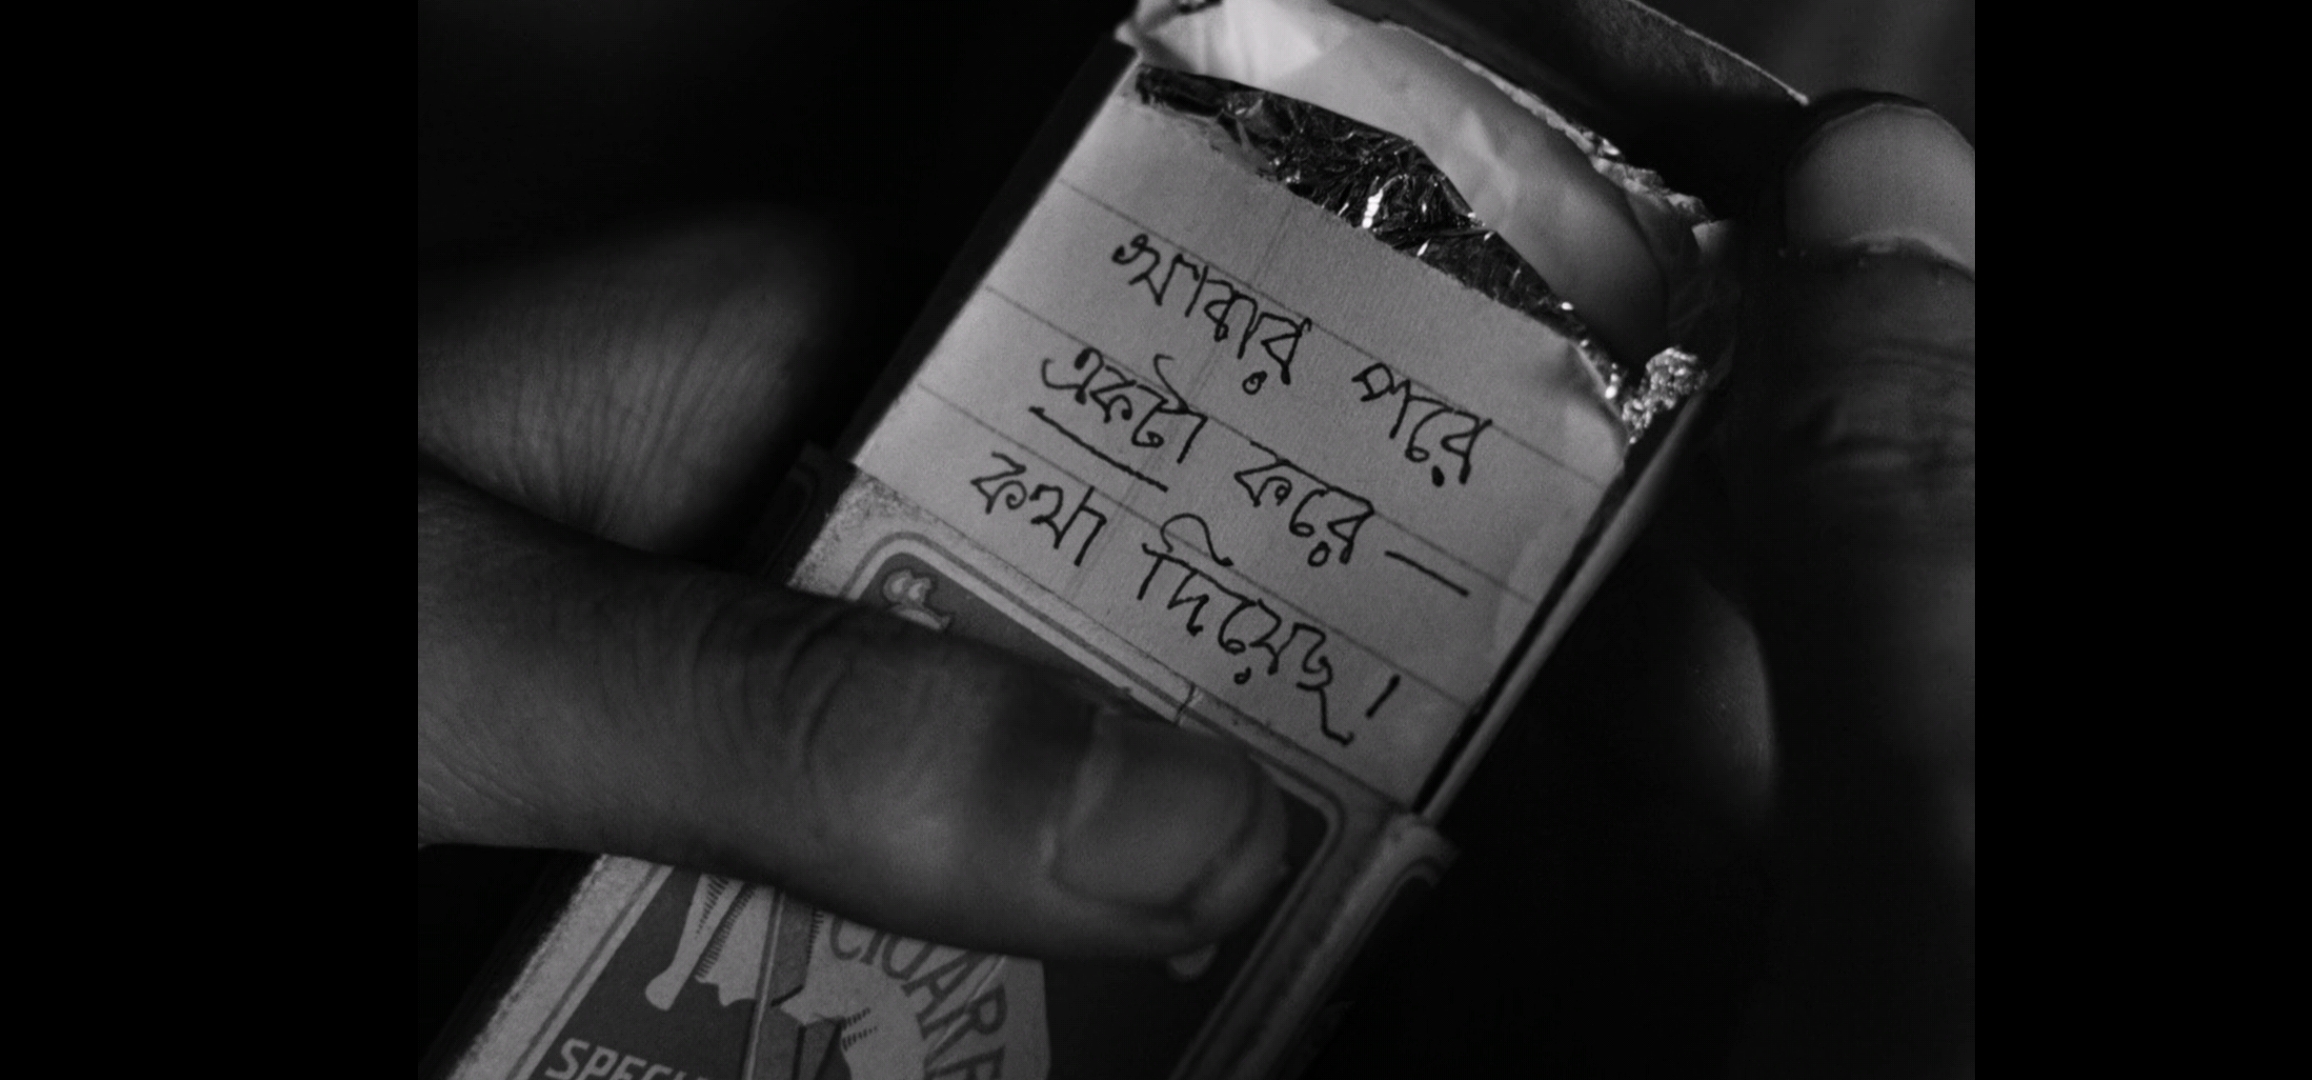 খাবার পরে
একটা করে —
কথা দিয়েছ!
CIGARE
SPECI